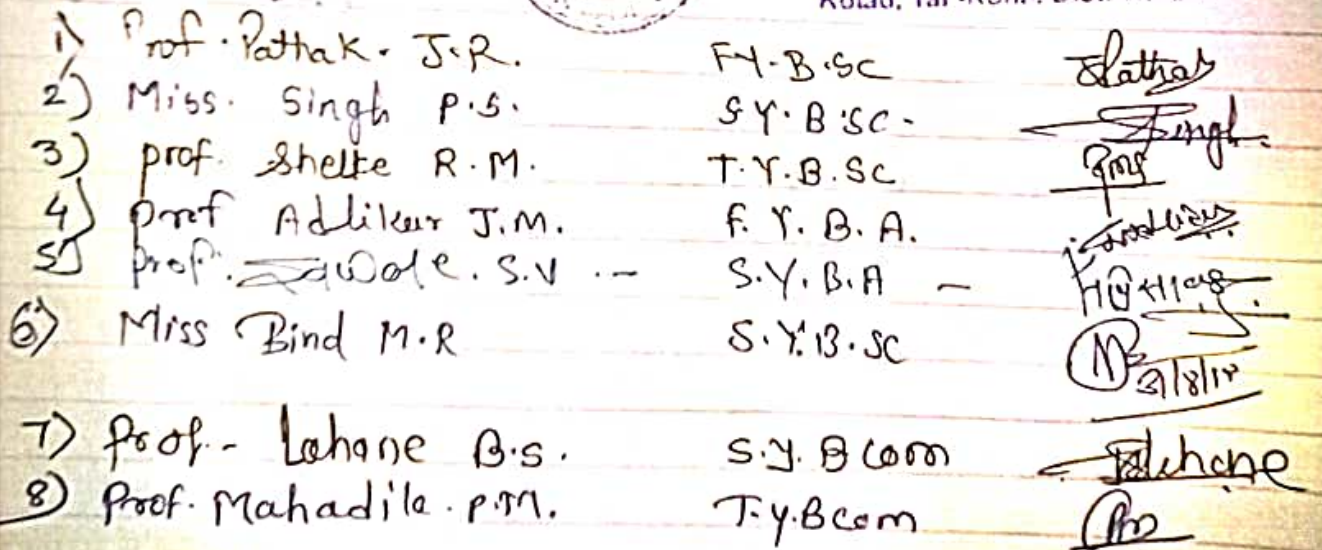 1) Prof. Pathak. J.R. FY.B.SC Pathak
2) Miss. Singh P.S. S.Y.B.SC - Singh
3) prof. Shelke R.M. T.Y.B.SC
4) prof Adlikar J.M. F.Y.B.A.
5) Prof. S.V .- S.Y.B.A -
6) Miss Bind M.R S.Y.B.SC
7) Prof.- Lahane B.S. S.Y. B com Lahane
8) Prof. Mahadik. P.M. T.Y.Bcom